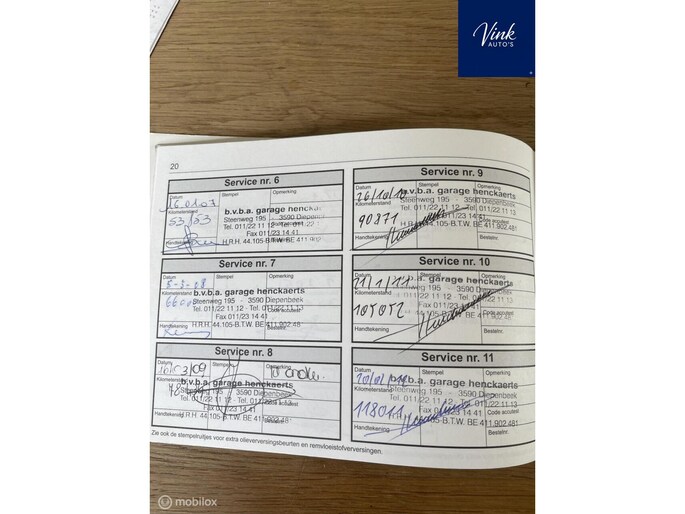 Vink
AUTO'S
20
Service nr. 6
Datum
Stempel
Opmerking
16.01.07
Kilometerstand
b.v.b.a. garage henckaerts
Steenweg 195 - 3590 Diepenbeek
Tel. 011/22 11 12 - Tel. 011/22
Fax 011/23 14 41
Handtekening
H.R.H. 44.105-B.T.W. BE 411.902
Service nr. 7
Datum
Stempel
Opmerking
Kilometerstand
b.v.b.a. garage henckaerts
Steenweg 195 - 3590 Diepenbeek
Tel. 011/22 11 12 - Tel. 011/22
Fax 011/23 14 41
Handtekening
H.R.H. 44.105-B.T.W. BE 411.902.48
Service nr. 8
Datum
Stempel
Opmerking
Kilometerstand
b.v.b.a. garage henckaerts
195 - 3590 Diepenbeek
011/22 11 12 - Tel. 011/22
Fax 011/23 14 41
Handtekening
44.105-B.T.W. BE 411.902.48
Service nr. 9
Datum
Stempel
Opmerking
26/10/10
Kilometerstand
b.v.b.a. garage henckaerts
90871
Steenweg 195 - 3590 Diepenbeek
Tel. 011/22 11 12 - Tel. 011/22 11 13
011/23 14 41
Code acculest
Handtekening
H.R.H. 44.105-B.T.W. BE 411.902.481
Bestelnr.
Service nr. 10
Datum
Stempel
Opmerking
Kilometerstand
b.v.b.a. garage henckaerts
Steenweg 195 - 3590 Diepenbeek
105072
011/22 11 12 - Tel. 011/22 11 13
Fax 011/23 14 41
Code acculest
Handtekening
44.105-B.T.W. BE 411.902.481
Bestelnr.
Service nr. 11
Datum
Stempel
Opmerking
Kilometerstand
b.v.b.a. garage henckaerts
Steenweg 195 - 3590 Diepenbeek
118011
011/22 11 12 - Tel. 011/22 11 13
Fax 011/23 14 41
Code acculest
Handtekening
44.105-B.T.W. BE 411.902.481
Bestelnr.
Zie ook de stempelruitjes voor extra olieverversingsbeurten en remvloeistofverversingen.
© mobilox